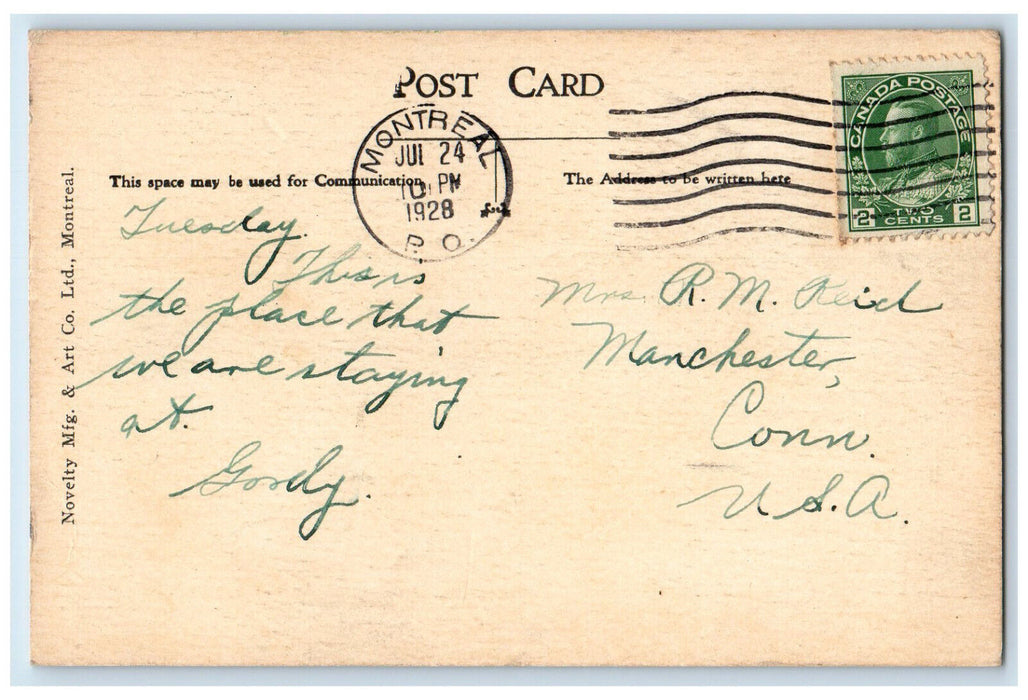 POST CARD
MONTREAL
JUL 24
10 PM
1928
P. O.
CANADA POSTAGE
2 TWO CENTS 2
This space may be used for Communication
The Address to be written here
Tuesday.
This is
the place that
we are staying
at.
Gordy.
Mrs. R. M. Reid
Manchester,
Conn.
U.S.A.
Novelty Mfg. & Art Co. Ltd., Montreal.